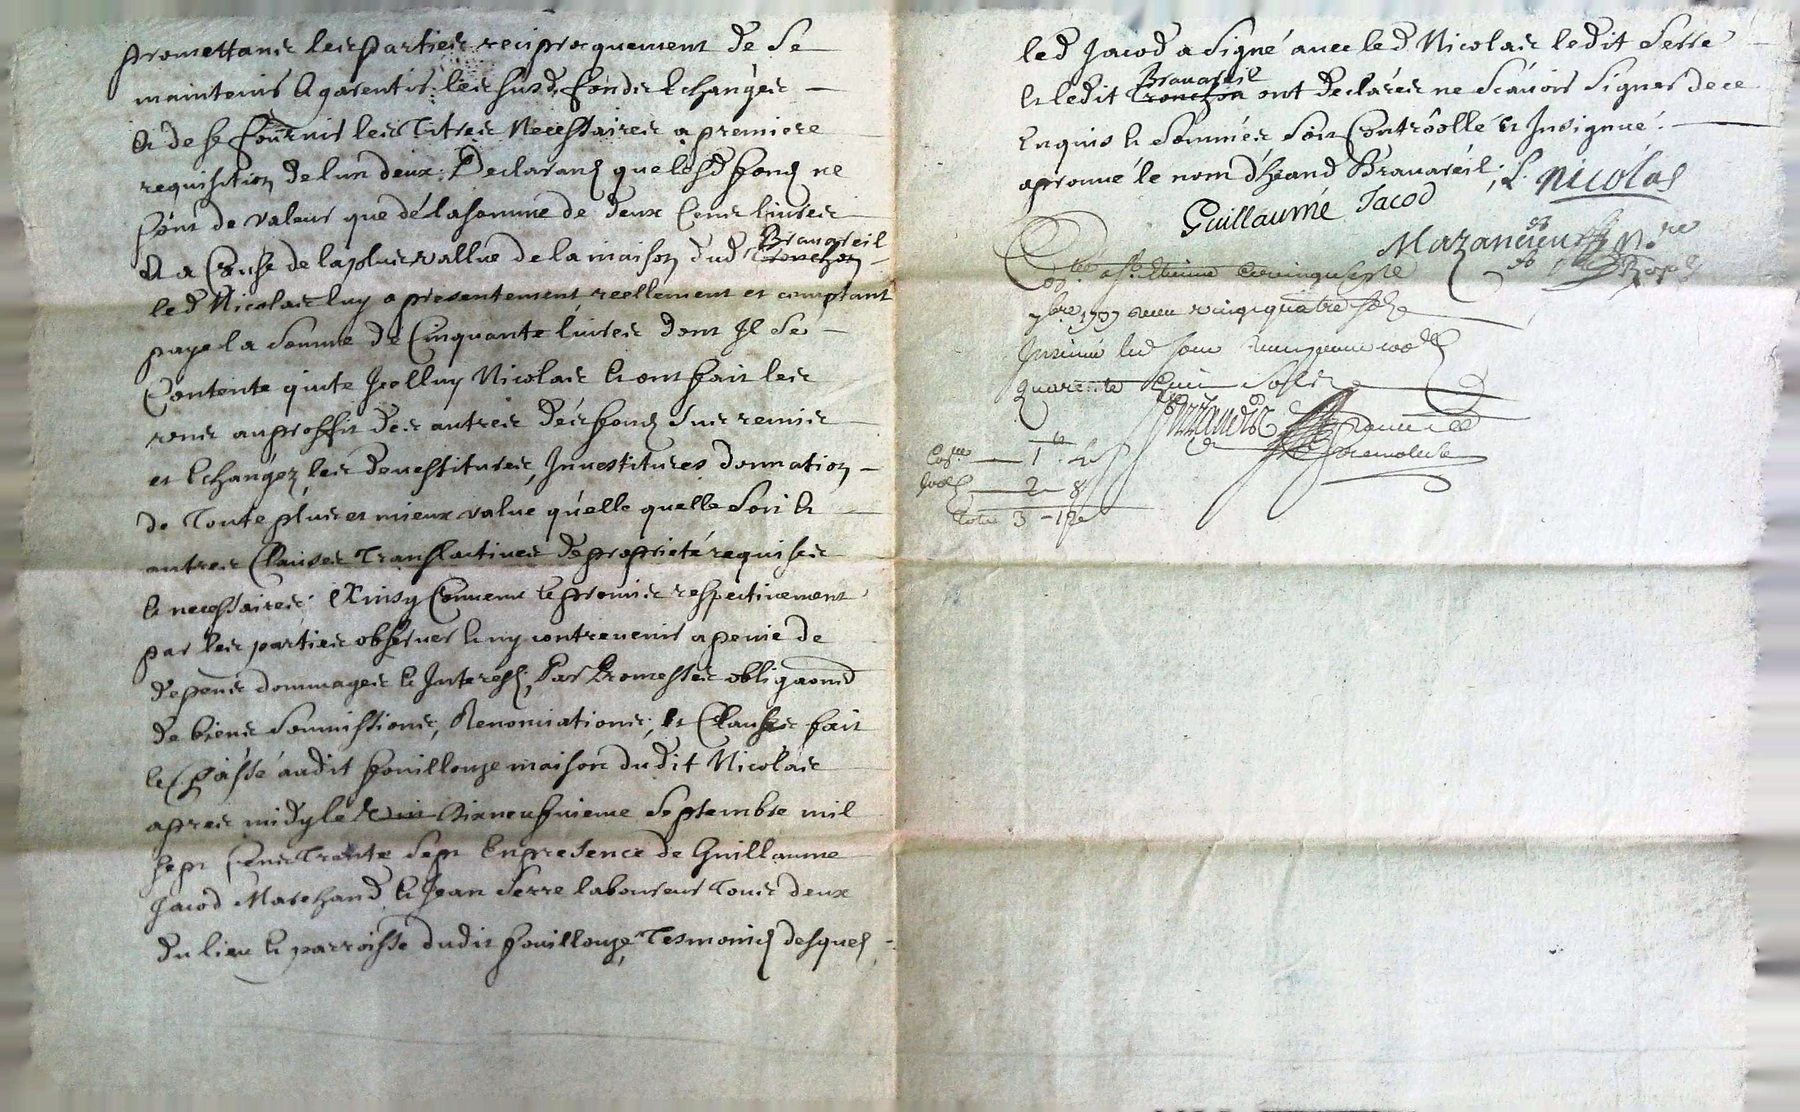 promettants les parties reciproquement de se
maintenir & garentir les susd. fonds Echangés
Et de se fournir les Titres Necessaires a premiere
requisition de lun deux. Declarans que lesd fonds ne
sont de valeur que dé la somme de deux Cents livres
Et a Cause de la plus vallue de la maison dud Tronchon Brauareil
led Nicolas luy a presentement reellement et comptant
paye la somme de Cinquante livres dont Il se
Contente quite Icelluy Nicolas Et ont fait les
vens au proffit des autres des fonds sus remis
et Echangez les devestitures, Investitures donnation
de Toute plus et mieux value qu'elle quelle soit Et
autres Clauses Translatives de proprieté requises
Et necessaires. Ainsy Convenu & promis respectivement
par les parties observer & ny contrevenir a peine de
depens dommages & Interests, Par Promesses obligaons
de biens soumissions, Renonciations, Et Clauses fait
& Passé audit fouillouze maison dudit Nicolas
apres midy le dixneufvieme Septembre mil
sept Cents Trente sept En presence de Guillaume
Jacod Marchand & Jean Serre laboureur Tous deux
du lieu & parroisse dudit fouillouze, Tesmoins desquels
led Jacod a signé avec led Nicolas ledit Serre
Et ledit Tronchon Brauareil ont declarés ne sçavoir signer de ce
Enquis & sommés soit Controollé Et Insignué.
aprouué le nom d'heand Brauareil, L. Nicolas
Guillaumé Jacod
Mazancieux Nre
Royal
Collé a St. Etienne le vingt sept
7bre 1737 receu vingt quatre sols
Insinué led jour
quarente huit sols
Con 1 4
2 8
Total 3 - 12